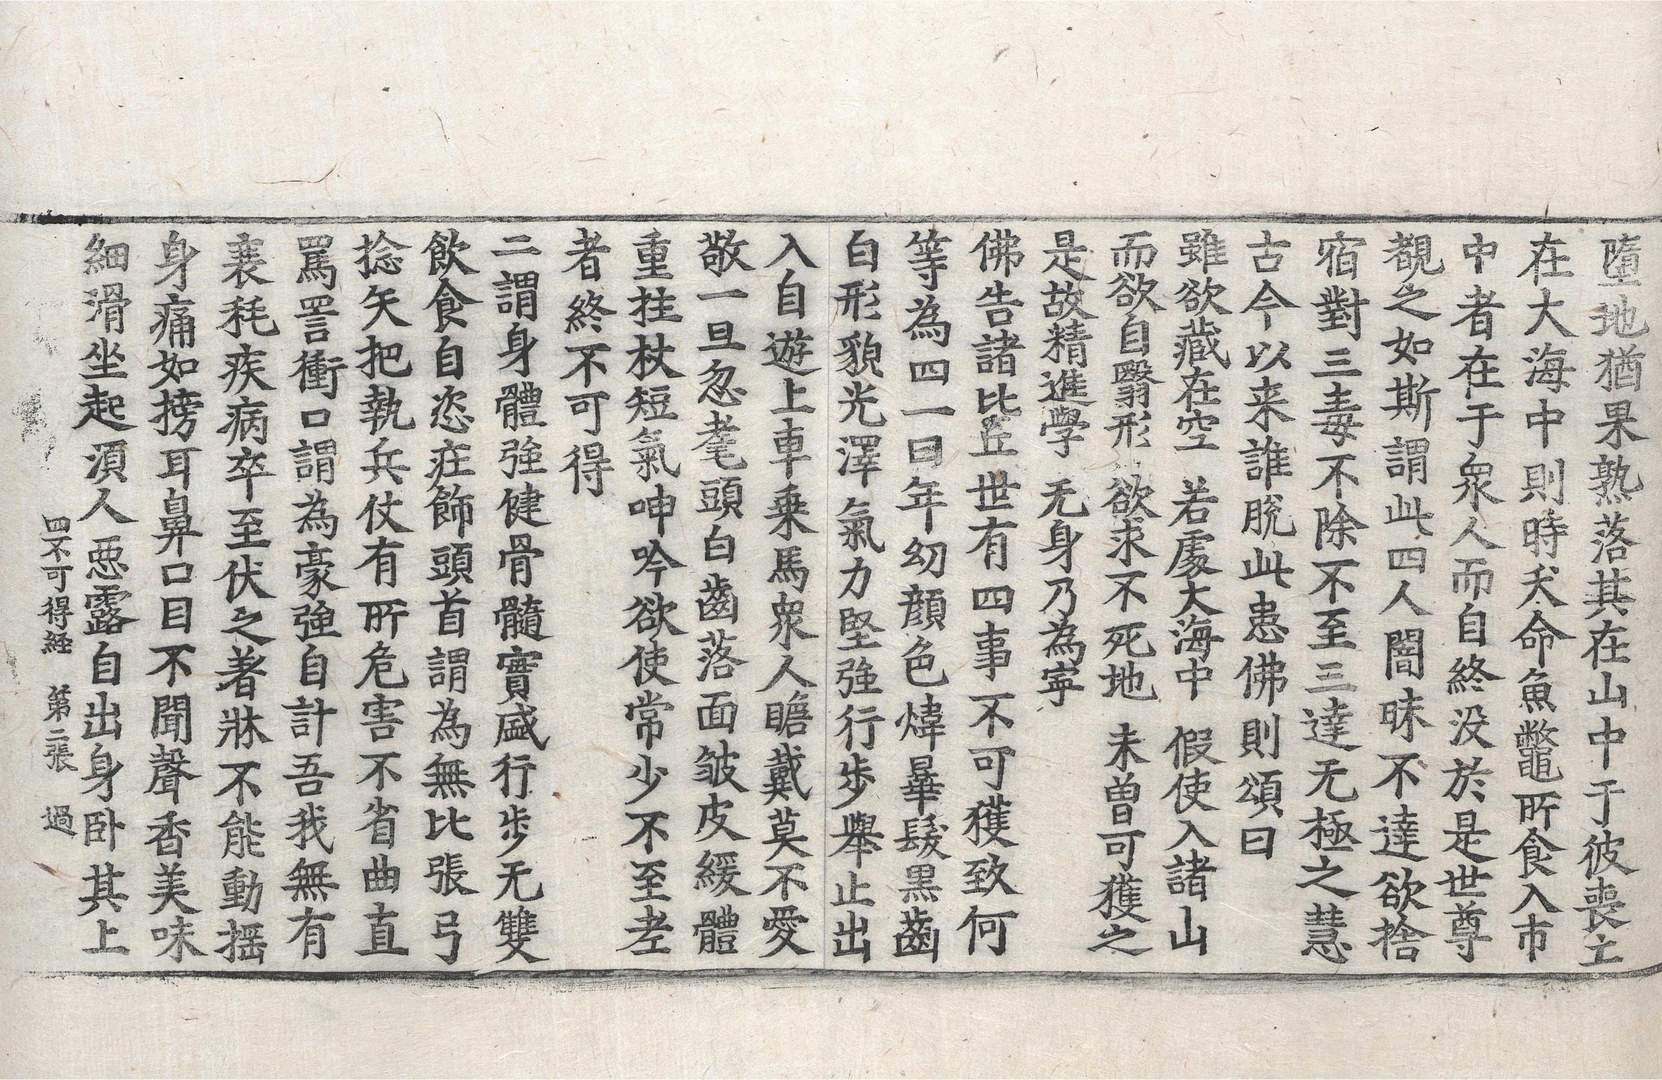 墮地猶果熟落其在山中于彼喪亡
在大海中則時夭命魚鼈所食入市
中者在于衆人而自終没於是世尊
覩之如斯謂此四人闇昧不達欲捨
宿對三毒不除不至三達无極之慧
古今以来誰脫此患佛則頌曰
雖欲藏在空 若處大海中 假使入諸山
而欲自翳形 欲求不死地 未曽可獲之
是故精進學 无身乃為寧
佛告諸比丘世有四事不可獲致何
等為四一曰年幼顏色煒曅髮黒齒
白形貌光澤氣力堅強行步舉止出
入自遊上車乗馬衆人瞻戴莫不愛
敬一旦忽耄頭白齒落面皱皮緩體
重拄杖短氣呻吟欲使常少不至老
者終不可得
二謂身體強健骨髓實盛行步无雙
飲食自恣莊飾頭首謂為無比張弓
捻矢把執兵仗有所危害不省曲直
罵詈衝口謂為豪強自計吾我無有
衰耗疾病卒至伏之著牀不能動揺
身痛如搒耳鼻口目不聞聲香美味
細滑坐起湏人惡露自出身卧其上
四不可得経 第二張 過